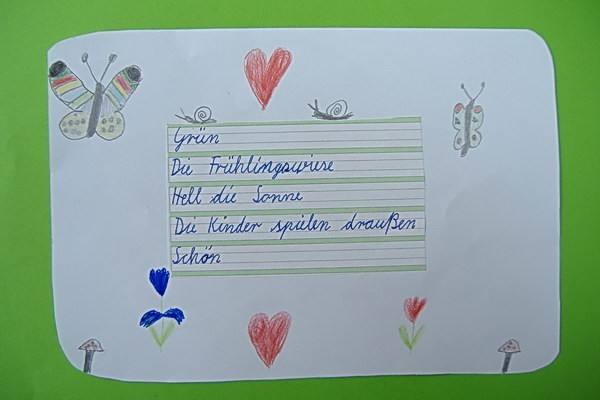 Grün
Die Frühlingswiese
Hell die Sonne
Die Kinder spielen draußen
Schön